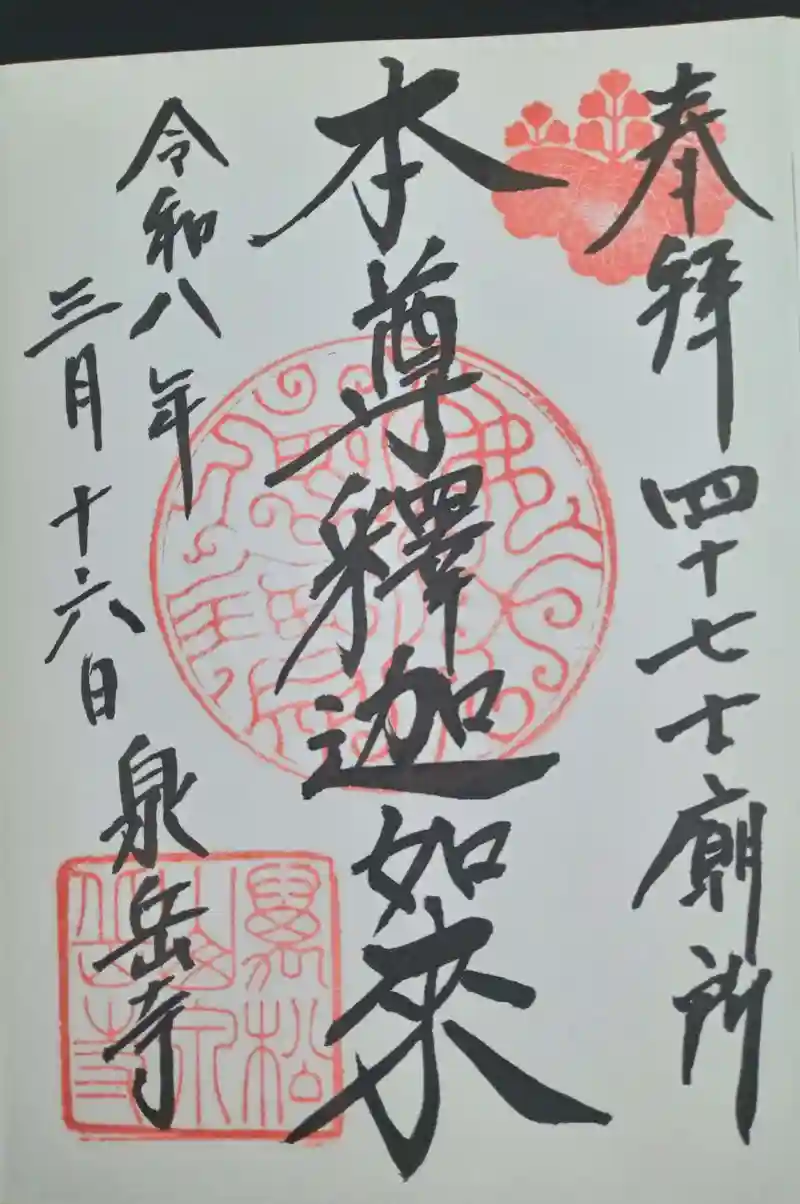 奉拝 四十七士廟所
本尊釋迦如來
令和八年
三月十六日 泉岳寺
萬松山泉岳寺